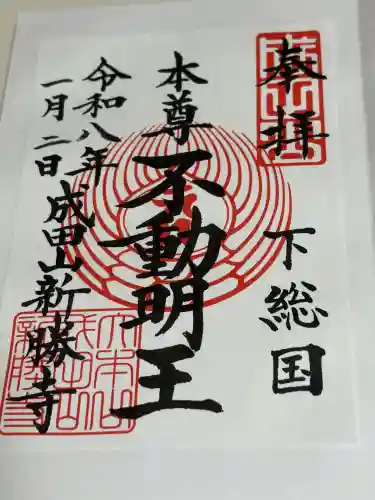 奉拝
下総国
本尊
不動明王
令和八年
一月二日
成田山新勝寺